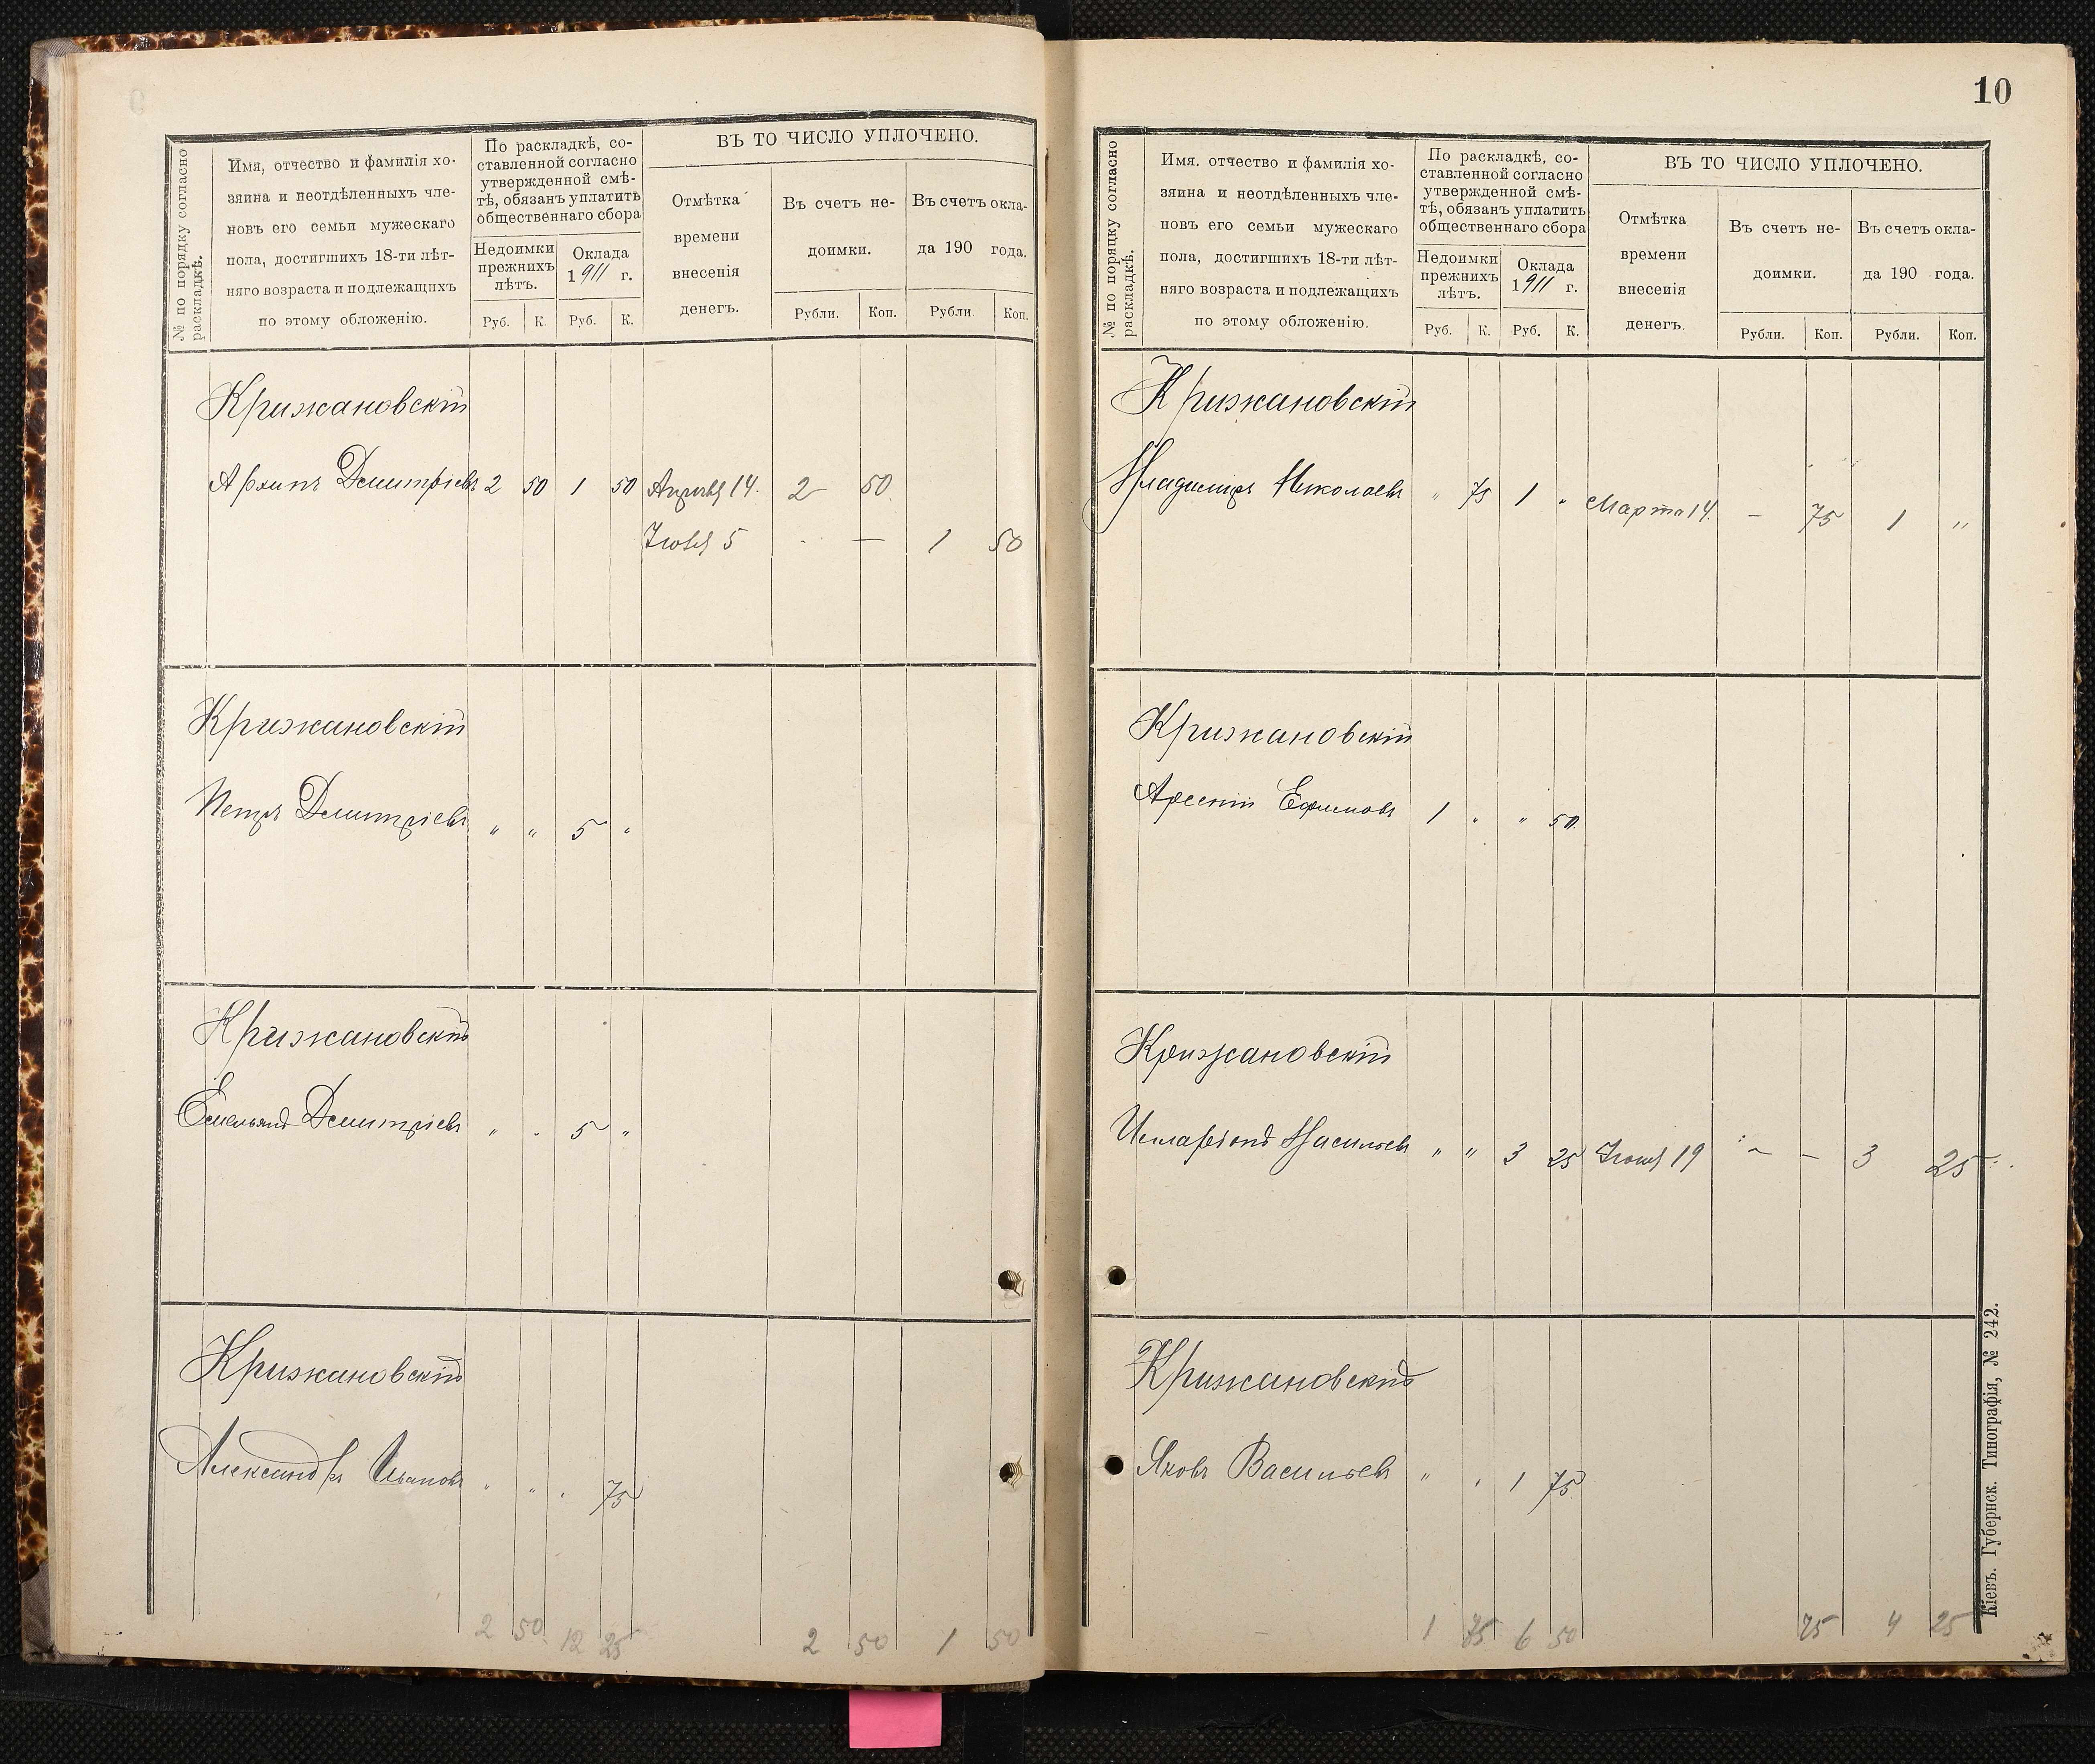 № по порядку согласно раскладкѣ.
Имя, отчество и фамилія хо-
зяина и неотдѣленныхъ чле-
новъ его семьи мужескаго
пола, достигшихъ 18-ти лѣт-
няго возраста и подлежащихъ
по этому обложенію.
По раскладкѣ, со-
ставленной согласно
утвержденной смѣ-
тѣ, обязанъ уплатить
общественнаго сбора
Недоимки
прежнихъ
лѣтъ.
Оклада
1911 г.
Руб. К. Руб. К.
ВЪ ТО ЧИСЛО УПЛОЧЕНО.
Отмѣтка
времени
внесенія
денегъ.
Въ счетъ не-
доимки.
Рубли. Коп.
Въ счетъ окла-
да 190 года.
Рубли Коп.
Крижановскій
Архипъ Дмитріевъ 2 50 1 50 Апрѣля 14. 2 50
Іюля 5 - — 1 50
Крижановскій
Петръ Дмитріевъ " " 5 "
Крижановскій
Емельянъ Дмитріевъ " " 5 "
Крижановскій
Александръ Ивановъ " " " 75
2 50 12 25 2 50 1 50
10
№ по поряцку согласно раскладкѣ.
Имя. отчество и фамилія хо-
зяина и неотдѣленныхъ чле-
новъ его семьи мужескаго
пола, достигшихъ 18-ти лѣт-
няго возраста и подлежащихъ
по этому обложенію.
По раскладкѣ, со-
ставленной согласно
утвержденной смѣ-
тѣ, обязанъ уплатить
общественнаго сбора
Недоимки
прежнихъ
лѣтъ.
Оклада
1911 г.
Руб. К. Руб. К.
ВЪ ТО ЧИСЛО УПЛОЧЕНО.
Отмѣтка
времени
внесенія
денегъ.
Въ счетъ не-
доимки.
Рубли. Коп.
Въ счетъ окла-
да 190 года.
Рубли. Коп.
Крижановскій
Владиміръ Николаевъ " 75 1 " Марта 14. — 75 1 "
Крижановскій
Арсеній Ефимовъ 1 " " 50
Крижановскій
Илларіонъ Васильевъ " " 3 25 Іюня 19 - - 3 25
Крижановскій
Яковъ Васильевъ " " 1 75
1 75 6 50 75 4 25
Кіевъ. Губернск. Типографія, № 242.